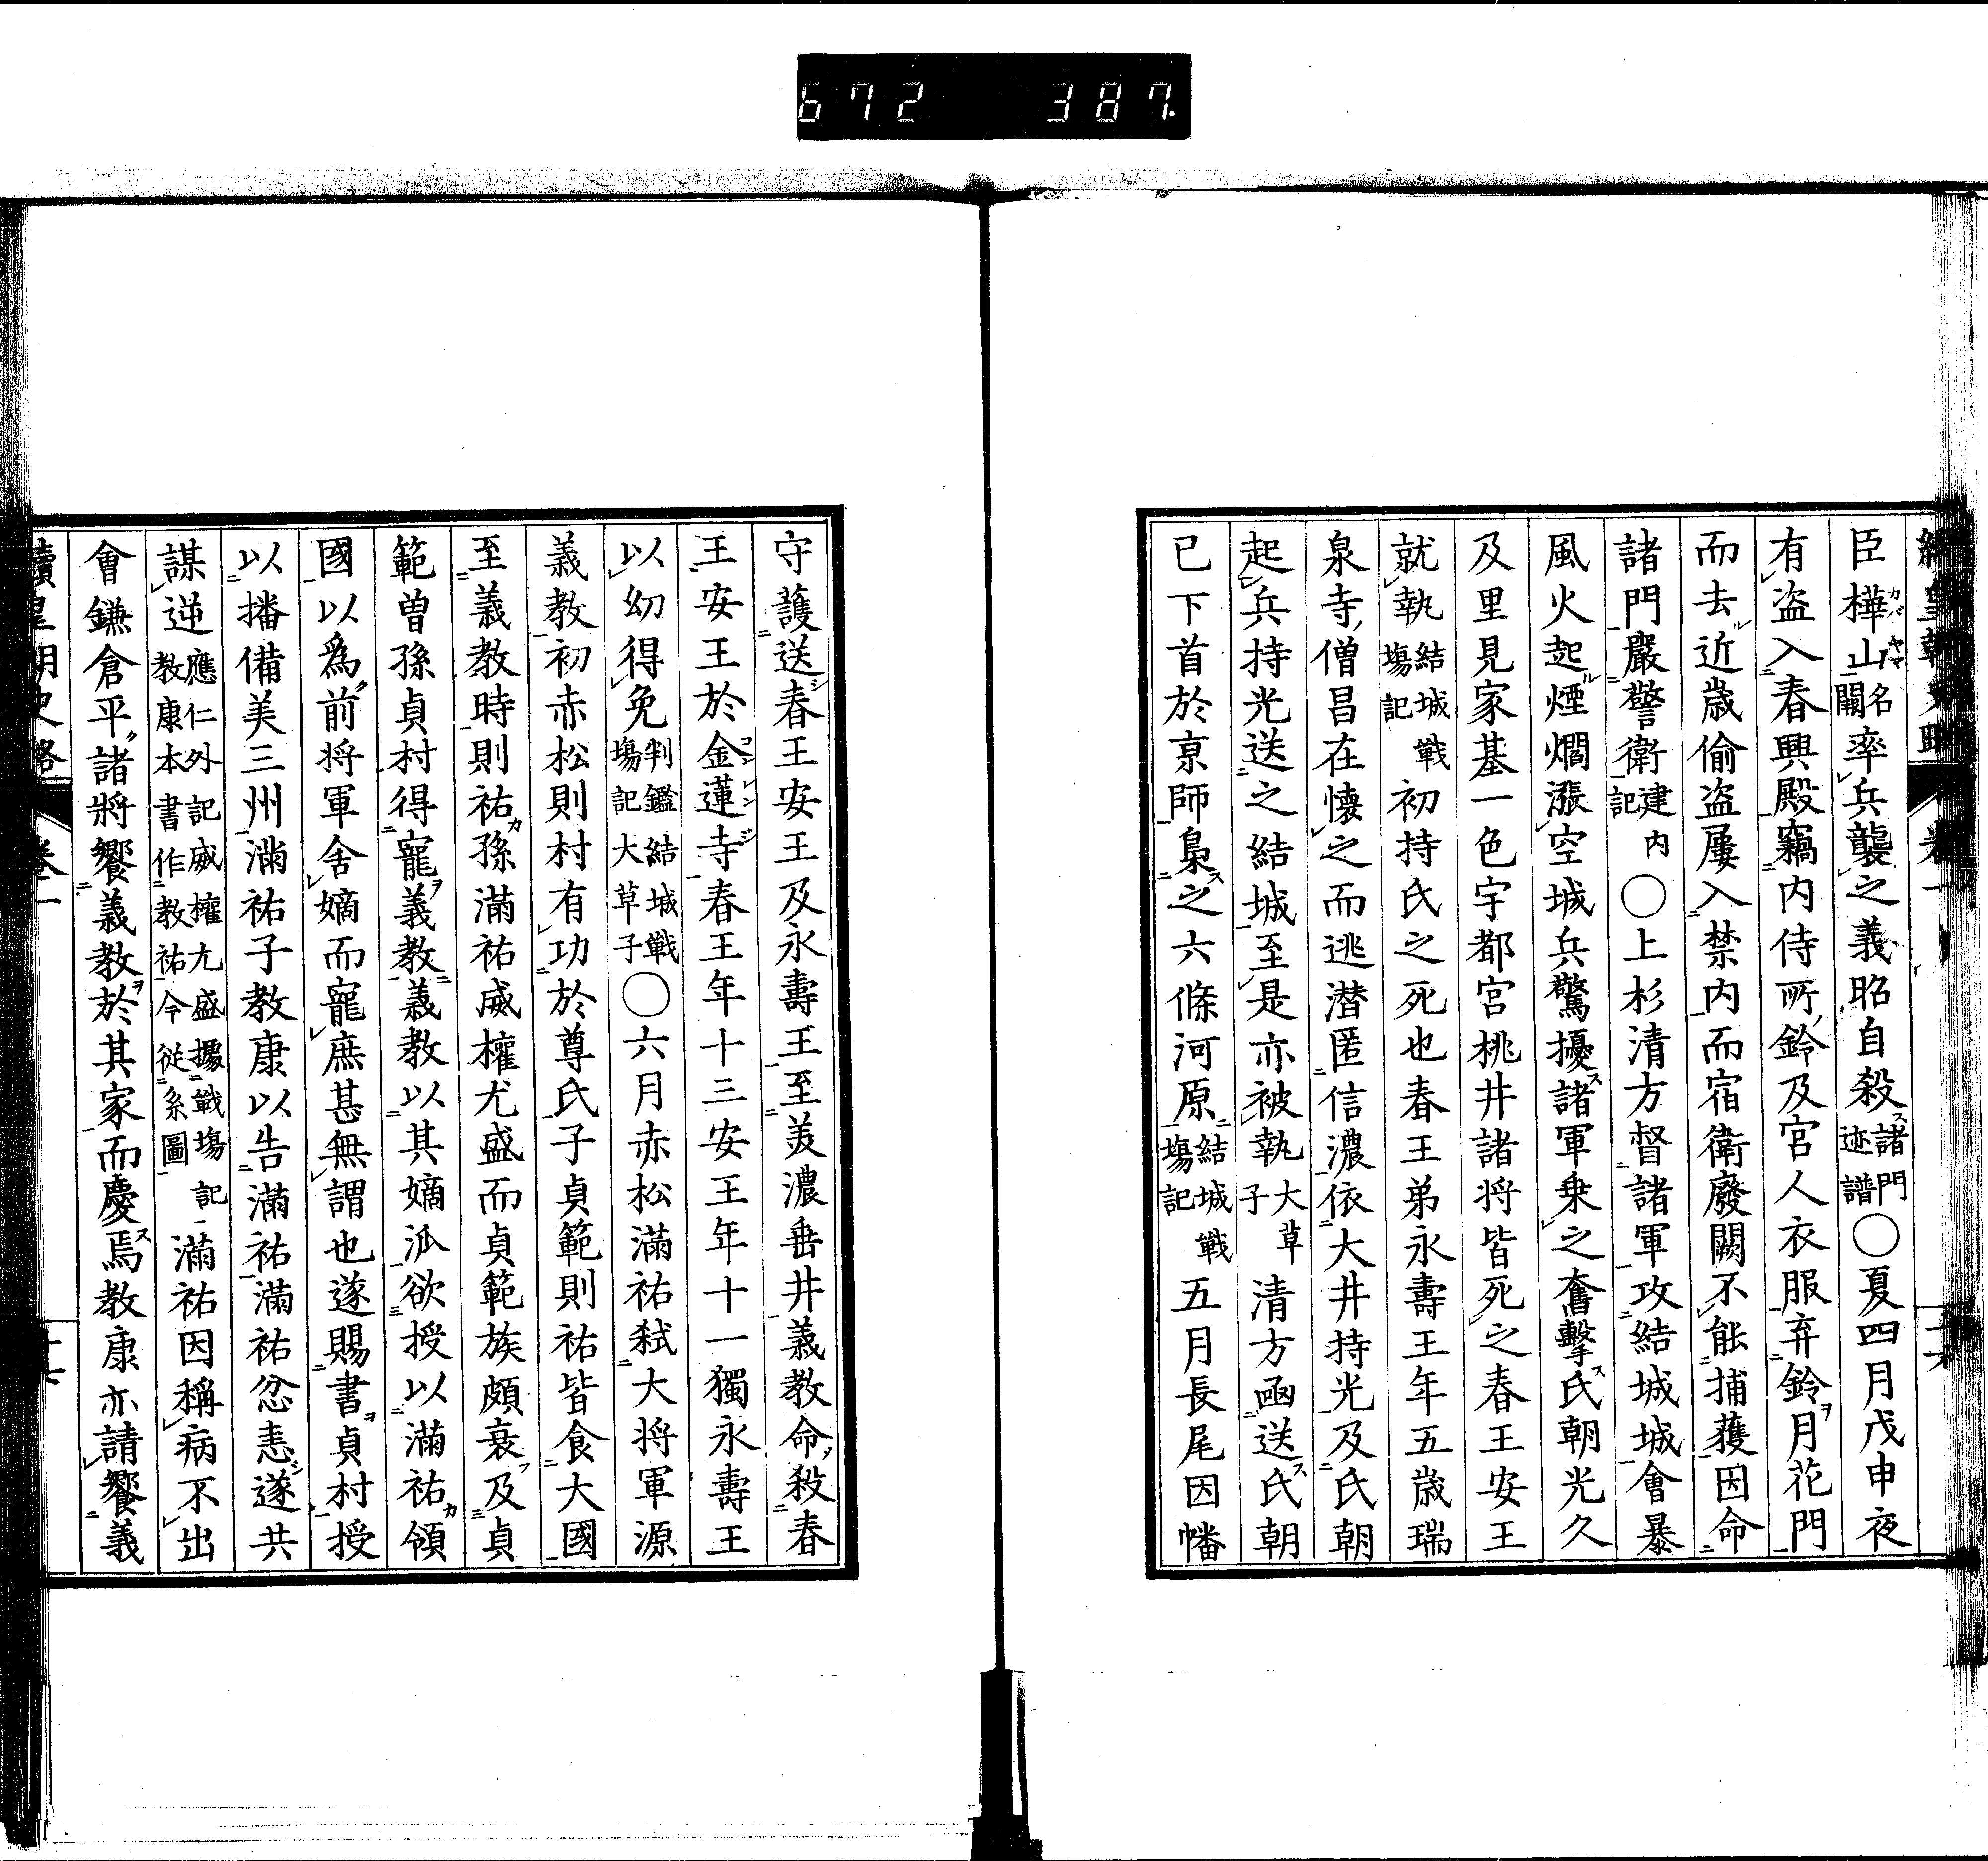 672 387
臣樺山名闕率兵襲之義昭自殺諸門迹譜〇夏四月戊申夜
有盗入春興殿竊内侍所鈴及宮人衣服弃鈴月花門
而去近歳偷盗屢入禁内而宿衛廢闕不能捕獲因命
諸門嚴警衛建内記〇上杉清方督諸軍攻結城城會暴
風火起煙爓漲空城兵驚擾諸軍乗之奮擊氏朝光久
及里見家基一色宇都宮桃井諸将皆死之春王安王
就執結城戰塲記初持氏之死也春王弟永壽王年五歳瑞
泉寺僧昌在懐之而逃潜匿信濃依大井持光及氏朝
起兵持光送之結城至是亦被執大草子清方凾送氏朝
已下首於京師梟之六條河原結城戰塲記五月長尾因幡
守護送春王安王及永壽王至美濃垂井義教命殺春
王安王於金蓮寺春王年十三安王年十一獨永壽王
以幼得免判鑑結城戰塲記大草子〇六月赤松滿祐弑大将軍源
義教初赤松則村有功於尊氏子貞範則祐皆食大國
至義教時則祐孫滿祐威權尤盛而貞範族頗衰及貞
範曽孫貞村得寵義教義教以其嫡派欲授以滿祐領
國以為前将軍舍嫡而寵庶甚無謂也遂賜書貞村授
以播備美三州滿祐子教康以告滿祐滿祐忿恚遂共
謀逆應仁外記威權尤盛據戰塲記教康本書作教祐今従系圖滿祐因稱病不出
會鎌倉平諸將饗義教於其家而慶焉教康亦請饗義